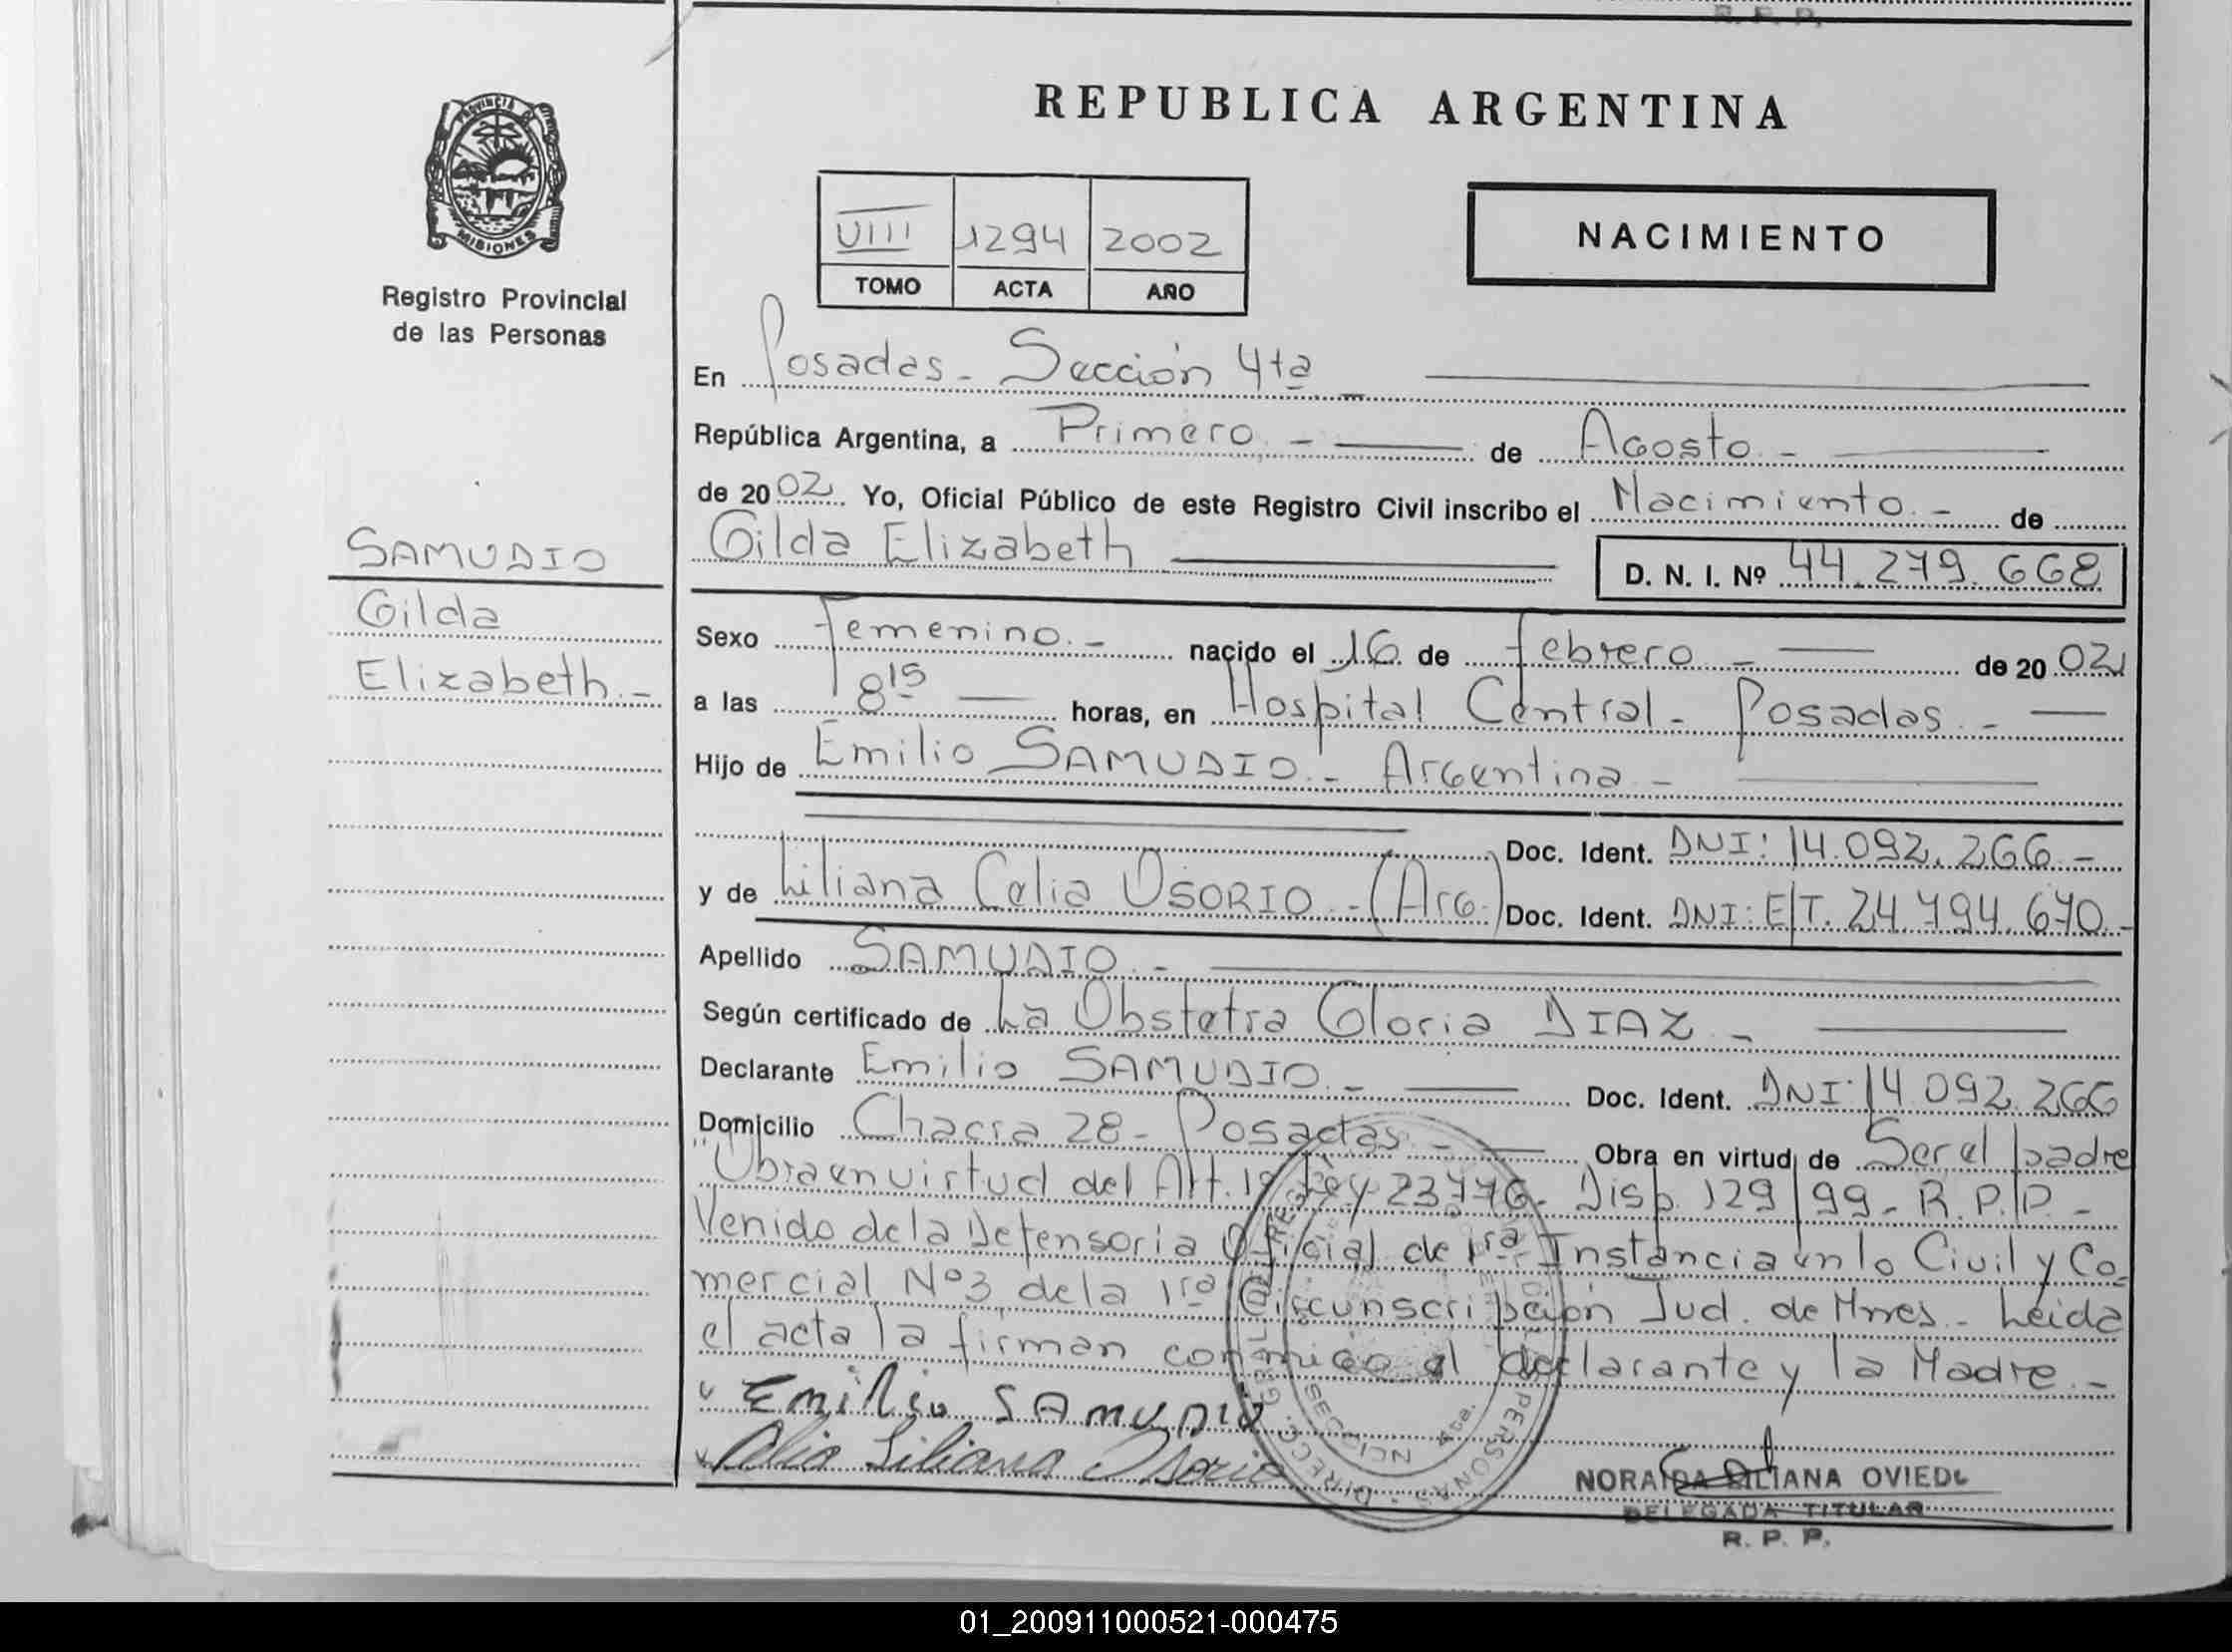 R. P. P.
PROVINCIA D
MISIONES
Registro Provincial
de las Personas
SAMUDIO
Gilda
Elizabeth.-
REPUBLICA ARGENTINA
VIII 1294 2002
TOMO ACTA AÑO
NACIMIENTO
En Posadas - Sección 4ta
República Argentina, a Primero.- de Agosto.-
de 2002. Yo, Oficial Público de este Registro Civil inscribo el Nacimiento.- de
Gilda Elizabeth D. N. I. Nº 44.279.668
Sexo Femenino.- nacido el 16 de febrero.- de 2002
a las 8 15 horas, en Hospital Central - Posadas.-
Hijo de Emilio SAMUDIO.- Argentina -
Doc. Ident. DNI: 14.092.266.-
y de Liliana Celia OSORIO.- (Arg.) Doc. Ident. DNI: E/T. 24.794.670.-
Apellido SAMUDIO.-
Según certificado de La Obstetra Gloria DIAZ -
Declarante Emilio SAMUDIO.- Doc. Ident. DNI: 14.092.266
Domicilio Chacra 28 - Posadas.- Obra en virtud de Ser el padre
"Obra en virtud del Art. 1º Ley 23776 - Disp. 129/99 - R.P.P. -
Venido de la Defensoria Oficial de 1ra Instancia en lo Civil y Co-
mercial Nº 3 de la 1ra Circunscripción Jud. de Mnes.- Leida
el acta la firman conmigo el declarante y la Madre.-
Emilio SAMUDIO
Celia Liliana Osorio
SECCION 4ta.
NORAIDA LILIANA OVIEDO
DELEGADA TITULAR
R. P. P.
01_200911000521-000475